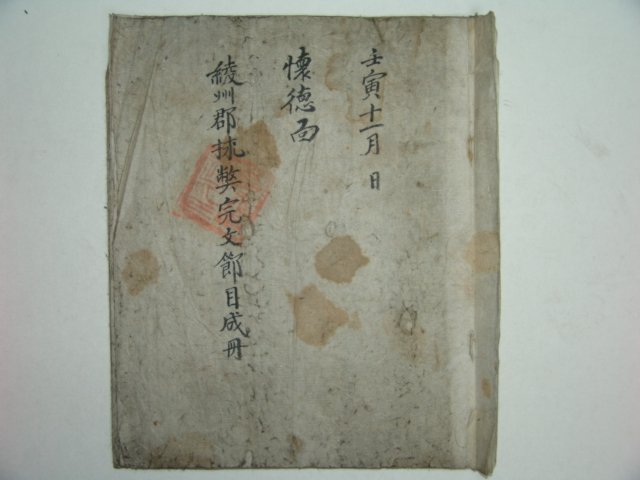 壬寅十一月 日
懐德面
綾州郡捄弊完文節目成冊